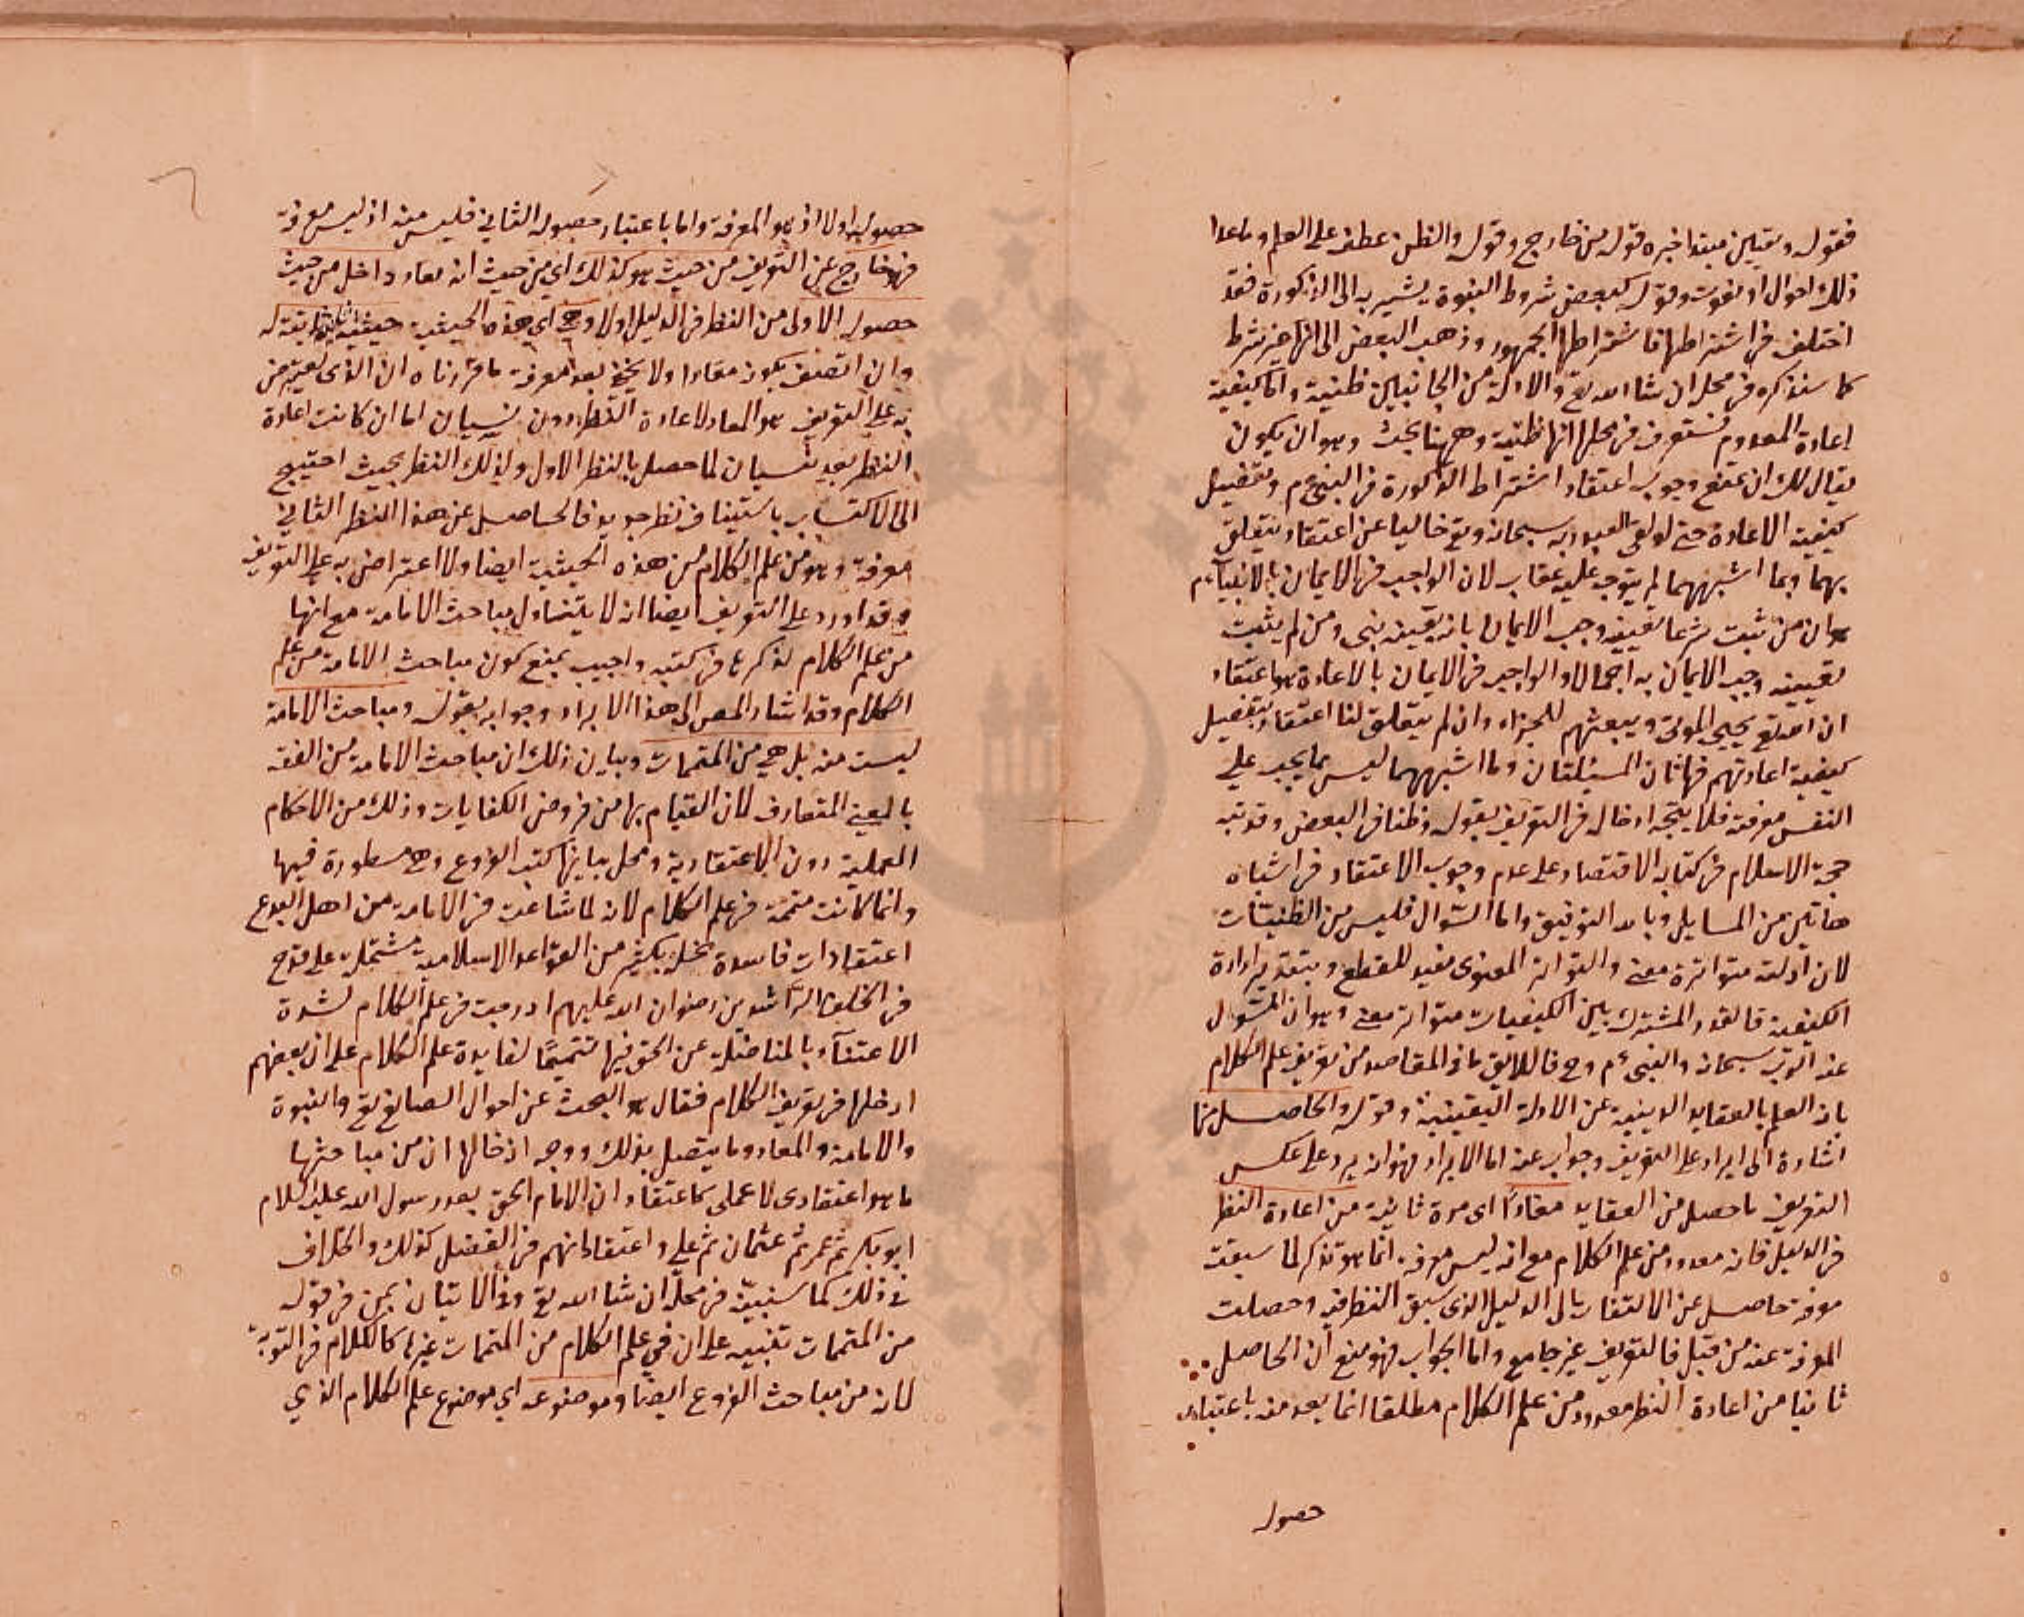 فقوله وتعيين مبتدا خبره قوله من خارج وقوله والظن عطف على العلم وما عدا
ذلك احوال او نعوت وقوله كبعض شروط النبوة يشير به الى الذكورة فقد
اختلف في اشتراطها فاشتراطها الجمهور وذهب البعض الى انها غير شرط
كما سنذكره في محله ان شا الله تع والادلة من الجانبين ظنية واما كيفية
اعادة المعدوم فستعرف في محلها انها ظنية وههنا بحث وهو ان يكون
يقال لك ان تمنع وجوب اعتقاد اشتراط الذكورة في النبي م وتفضيل
كيفية الاعادة حتى لو لقى العبد ربه سبحانه وتع خاليا عن اعتقاد يتعلق
بهما وبما اشبههما لم يتوجه عليه عقاب لان الواجب في الايمان بالانبياء م
هو ان من ثبت شرعا تعيينه وجب الايمان بانه بعينه نبي ومن لم يثبت
تعيينه وجب الايمان به اجمالا والواجب في الايمان بالاعادة هو اعتقاد
ان الله تع يحيي الموتى ويبعثهم للجزاء وان لم يتعلق لنا اعتقاد بتفصيل
كيفية اعادتهم فهاتان المسئلتان وما اشبههما ليس مما يجب على
النفس معرفته فلا يتجه ادخاله في التعريف بقوله وظنا في البعض وقد نبه
حجة الاسلام في كتابه الاقتصاد على عدم وجوب الاعتقاد في اشباه
هاتين من المسايل وبالله التوفيق واما السؤال فليس من الظنيات
لان ادلته متواترة معنى والتواتر المعنوي مفيد للقطع وبتقدير ارادة
الكيفية فالقدر المشترك بين الكيفيات متواتر معنى وهو ان المسئول
عنه الرب سبحانه والنبي م وح فاللايق ما في المقاصد من تعريف علم الكلام
بانه العلم بالعقايد الدينية عن الادلة اليقينية وقوله والحاصل منها
اشارة الى ايراد على التعريف وجواب عنه اما الايراد فهو انه يرد على عكس
التعريف ما حصل من العقايد معادًا اى مرة ثانية من اعادة النظر
في الدليل فانه معدود من علم الكلام مع انه ليس معرفة انما هو تذكر لما سبقت
معرفته حاصل عن الالتفات الى الدليل الذى سبق النظر فيه وحصلت
المعرفة عنه من قبل فالتعريف غير جامع واما الجواب فهو منع ان الحاصل
ثانيا من اعادة النظر معدود من علم الكلام مطلقا انما يعد منه باعتبار
حصوله
حصوله اولا اذ هو المعرفة واما باعتبار حصوله الثاني فليس منه اذ ليس معرفة
فهو خارج عن التعريف من حيث هو كذلك اي من حيث انه معاد داخل من حيث
حصوله الاولى من النظر في الدليل اولا وهي اي هذه الحيثية حيثية ثابتة له
وان اتصف بكونه معادا ولا يخفى بعد معرفة ما قررناه ان الذى يعترض
به على التعريف هو المعاد لاعادة النظر دون نسيان اما ان كانت اعادة
النظر بعد نسيان لما حصل بالنظر الاول ولذلك النظر بحيث احتيج
الى الاكتساب باستيناف نظر جديد فالحاصل عن هذا النظر الثاني
معرفة وهو من علم الكلام من هذه الحيثية ايضا ولا اعتراض به على التعريف
وقد اورد على التعريف ايضا انه لا يتناول مباحث الامامة مع انها
من علم الكلام لذكرها في كتبه واجيب بمنع كون مباحث الامامة من علم
الكلام وقد اشار المص الى هذا الايراد وجوابه بقوله ومباحث الامامة
ليست منه بل هي من المتممات وبيان ذلك ان مباحث الامامة من الفقه
بالمعنى المتعارف لان القيام بها من فروض الكفايات وذلك من الاحكام
العملية دون الاعتقادية ومحل بيانها كتب الفروع وهي مسطورة فيها
وانما كانت متممة في علم الكلام لانه لما شاعت في الامامة من اهل البدع
اعتقادات فاسدة مخلة بكثير من القواعد الاسلامية مشتملة على قدح
في الخلفا الراشدين رضوان الله عليهم ادرجت في علم الكلام لشدة
الاعتناء بالمناضلة عن الحق فيها تتميمًا لفايدة علم الكلام على ان بعضهم
ادخلها في تعريف الكلام فقال هو البحث عن احوال الصانع تع والنبوة
والامامة والمعاد وما يتصل بذلك ووجه ادخالها ان من مباحثها
ما هو اعتقادى لا عملى كاعتقاد ان الامام الحق بعد رسول الله عليه السلام
ابو بكر ثم عمر ثم عثمان ثم على واعتقاد انهم في الفضل كذلك والخلاف
في ذلك كما سنبينه في محله ان شا الله تع وفي الاتيان بمن في قوله
من المتممات تنبيه على ان في علم الكلام من المتممات غيرها كالكلام في التوبة
لانه من مباحث الفروع ايضا وموضوعه اي موضوع علم الكلام الذي